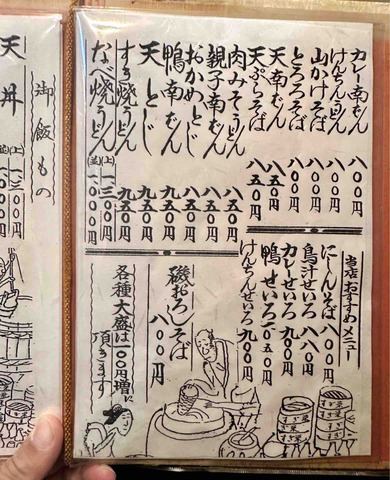 カレー南ばん 八〇〇円
けんちんうどん 八〇〇円
山かけそば 八〇〇円
とろろそば 八〇〇円
天南ばん 八五〇円
天ぷらそば 八五〇円
肉みそうどん 八五〇円
親子南ばん 八〇〇円
おかめとじ 八五〇円
鴨南ばん 九五〇円
天とじ 九五〇円
すき焼うどん 九五〇円
なべ焼うどん (上)一、三〇〇円 (並)一、〇〇〇円
当店おすすめメニュー
にしんそば 八〇〇円
鳥汁せいろ 八八〇円
カレーせいろ 九〇〇円
鴨せいろ 一、〇五〇円
けんちんせいろ 九〇〇円
磯おろしそば 八〇〇円
各種大盛は一〇〇円増に
頂きます
御飯もの
天丼 (上)